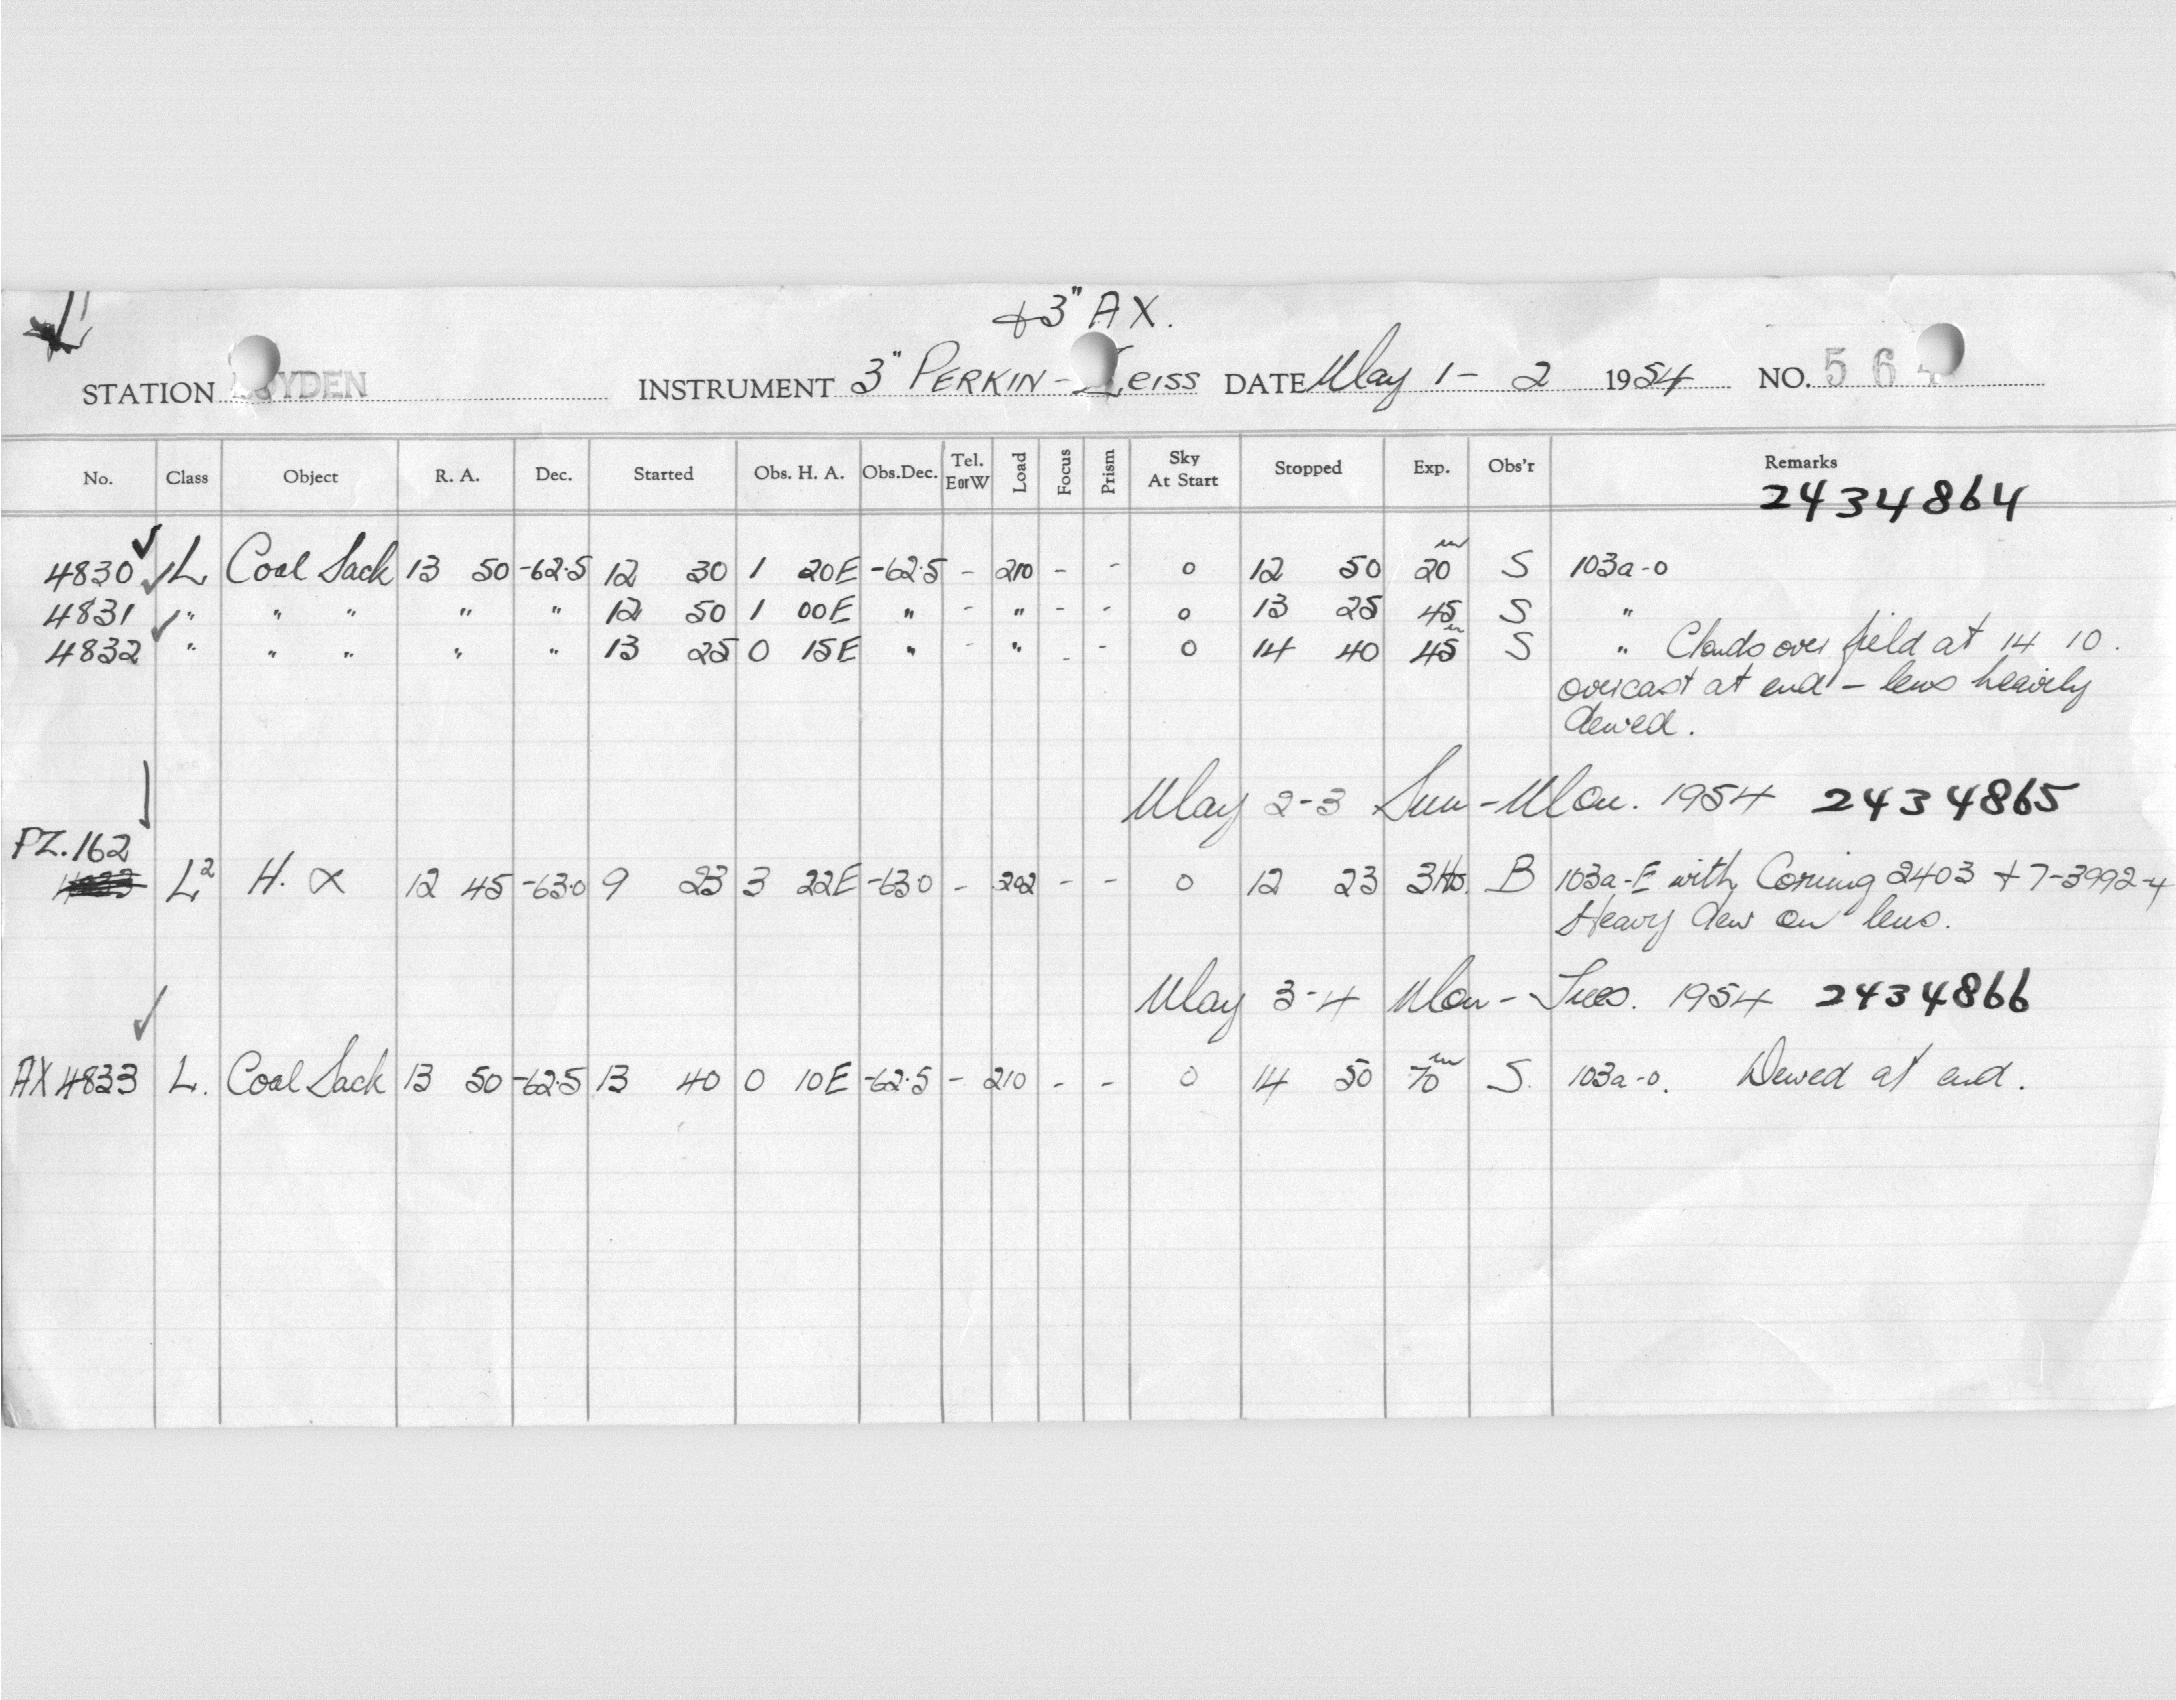 +3" AX.
STATION BOYDEN INSTRUMENT 3" PERKIN-ZEISS DATE May 1-2 1954 NO. 564
No. Class Object R. A. Dec. Started Obs. H. A. Obs.Dec. Tel. E or W Load Focus Prism Sky At Start Stopped Exp. Obs'r Remarks
2434864
4830 L Coal Sack 13 50 -62.5 12 30 1 20E -62.5 - 210 - - 0 12 50 20m S 103a-0
4831 " " " " " 12 50 1 00E " - " - - 0 13 25 45 S "
4832 " " " " " 13 25 0 15E " - " - - 0 14 40 45m S " Clouds over field at 14 10.
overcast at end - lens heavily
dewed.
May 2-3 Sun-Mon. 1954 2434865
PZ.162
L² H. α 12 45 -63.0 9 23 3 22E -63.0 - 202 - - 0 12 23 3Hrs. B 103a-E with Corning 2403 + 7-3992-4
Heavy dew on lens.
May 3-4 Mon-Tues. 1954 2434866
AX 4833 L. Coal Sack 13 50 -62.5 13 40 0 10E -62.5 - 210 - - 0 14 50 70m S. 103a-0. Dewed at end.